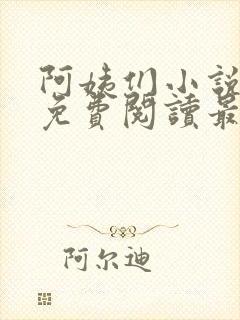 阿姨们小說
免費閱讀最
阿尔迪